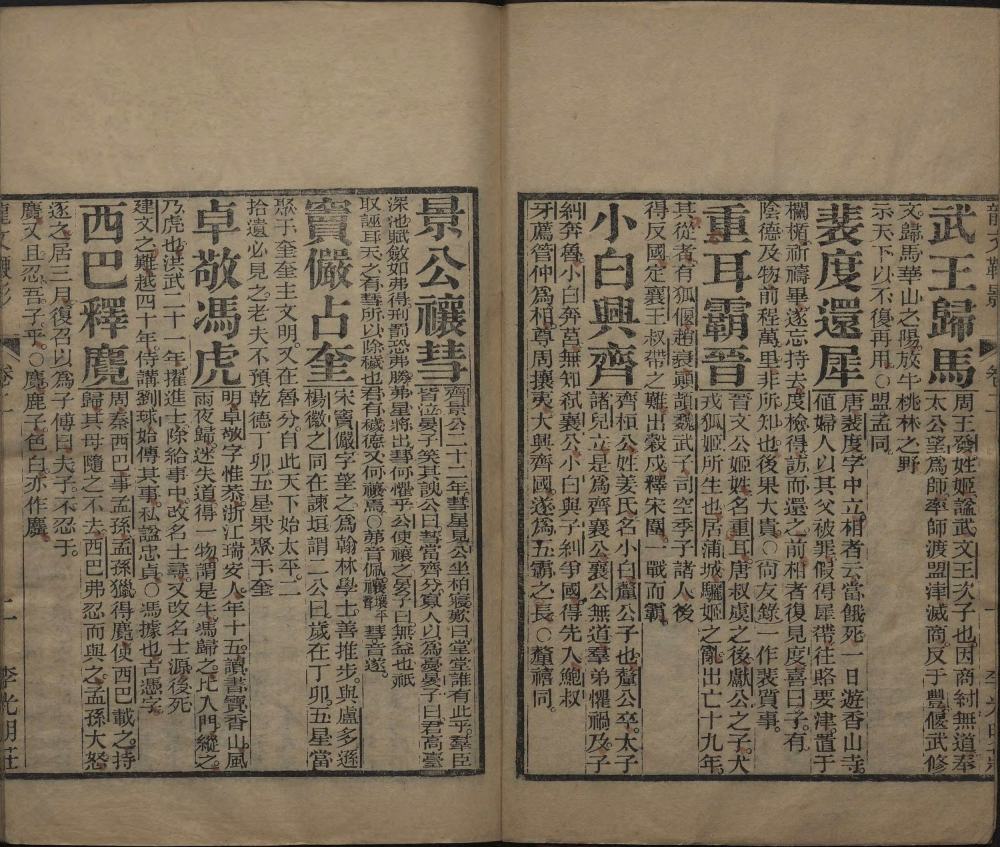 武王歸馬 周王發姓姬謚武文王次子也因商紂無道奉
太公望爲師率師渡盟津滅商反于豐偃武修
文歸馬華山之陽放牛桃林之野
示天下以不復再用○盟孟同
裴度還犀 唐裴度字中立相者云當餓死一日遊香山寺
値婦人以其父被罪假得犀帶往賂要津置于
欄楯祈禱畢遂忘持去度檢得訪而還之前相者復見度喜曰子有
陰德及物前程萬里非所知也後果大貴○尙友錄一作裴質事
重耳霸晉 晉文公姬姓名重耳唐叔虞之後獻公之子犬
戎狐姬所生也居蒲城驪姬之亂出亡十九年
其從者有狐偃趙衰顚頡魏武子司空季子諸人後
得反國定襄王叔帶之難出穀戍釋宋圍一戰而霸
小白興齊 齊桓公姓姜氏名小白釐公子也釐公卒太子
諸兒立是爲齊襄公襄公無道羣弟懼禍及子
糾奔魯小白奔莒無知弑襄公小白與子糾爭國得先入鮑叔
牙薦管仲爲相尊周攘夷大興齊國遂爲五霸之長○釐禧同
景公禳彗 齊景公三十二年彗星見公坐柏寢歎曰堂堂誰有此乎羣臣
皆泣晏子笑其諛公曰彗當齊分寡人以爲憂晏子曰君高臺
深池賦斂如弗得刑罰恐弗勝茀星將出彗何懼乎公使禳之晏子曰無益也祇
取誣耳天之有彗所以除穢也君有穢德又何禳焉○茀音佩禳壤平聲彗音遂
竇儼占奎 宋竇儼字望之爲翰林學士善推步與盧多遜
楊徽之同在諫垣謂二公曰歲在丁卯五星當
聚于奎奎主文明又在魯分自此天下始太平二
拾遺必見之老夫不預乾德丁卯五星果聚于奎
卓敬馮虎 明卓敬字惟恭浙江瑞安人年十五讀書寶香山風
雨夜歸迷失道得一物謂是牛馮歸之比入門縱之
乃虎也洪武二十一年擢進士除給事中改名士尋又改名士源後死
建文之難越四十年侍講劉球始傳其事私謚忠貞○馮據也古憑字
西巴釋麑 周秦西巴事孟孫孟孫獵得麑使西巴載之持
歸其母隨之不去西巴弗忍而與之孟孫大怒
逐之居三月復召以爲子傅曰夫子不忍于
麑又且忍吾子乎○麑鹿子色白亦作麛
卷二
二 李光明莊